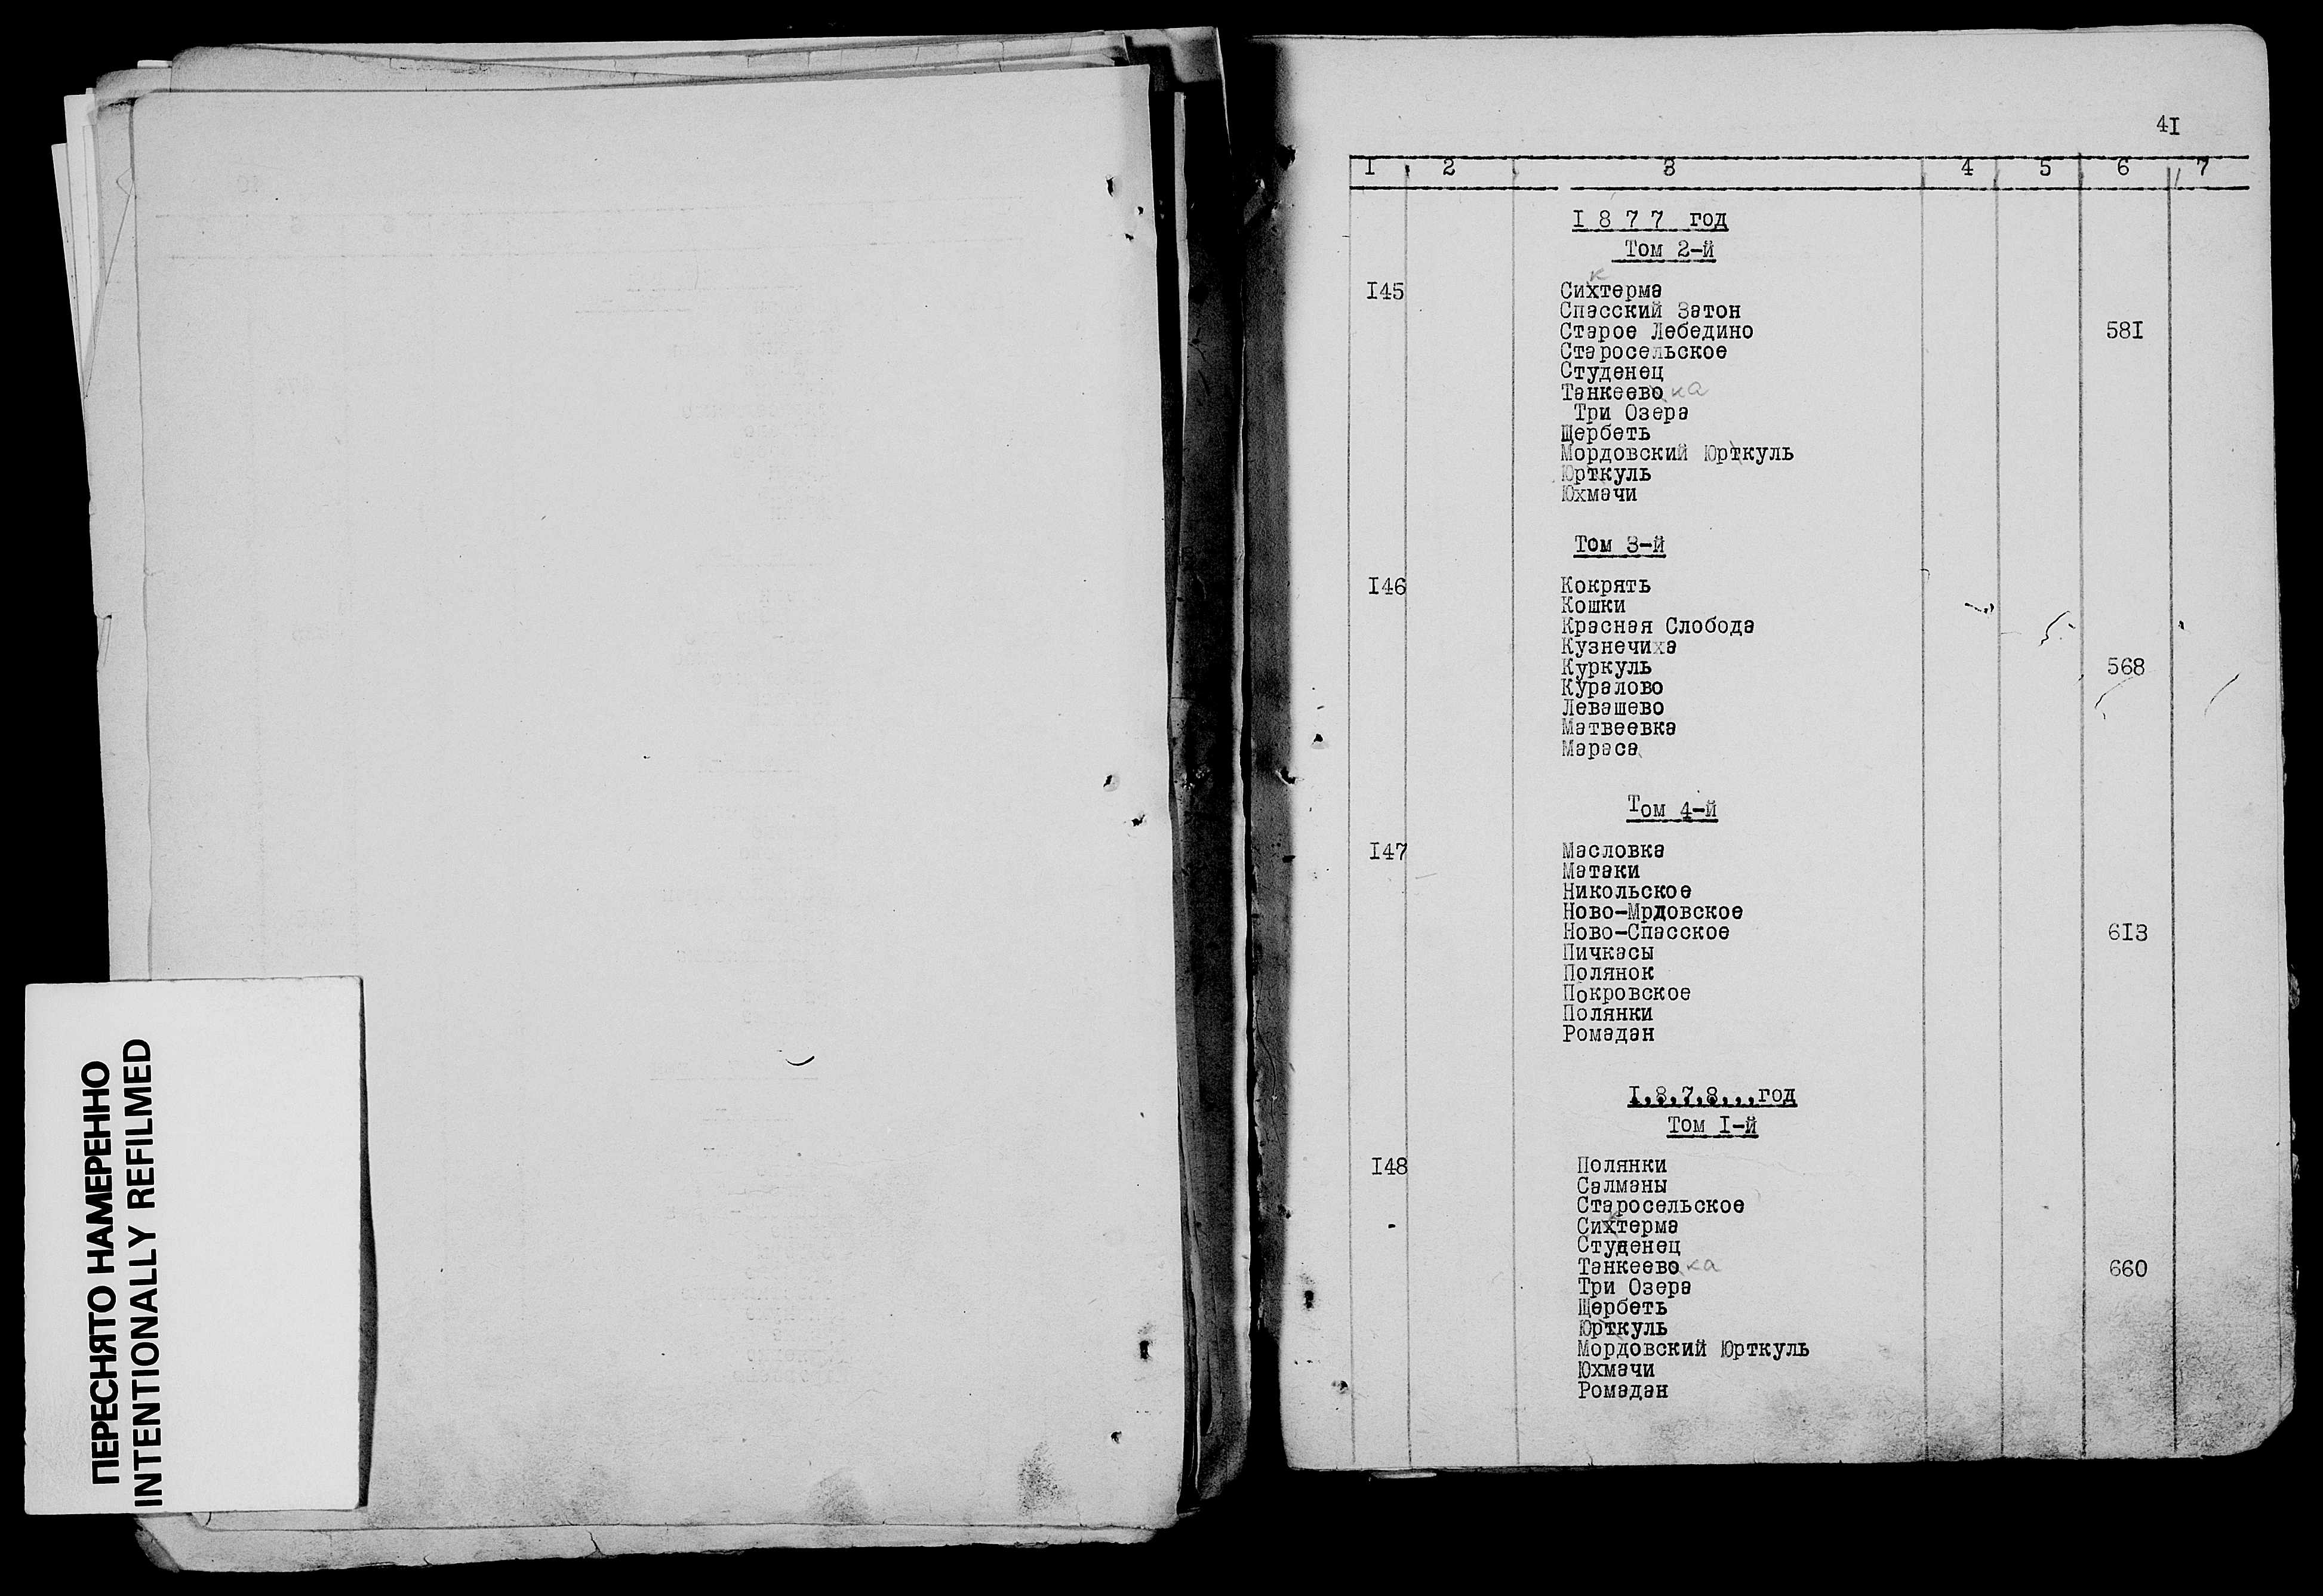 ПЕРЕСНЯТО НАМЕРЕННО
INTENTIONALLY REFILMED
4I
I 2 3 4 5 6 7
I 8 7 7 год
Том 2-й
к
I45 Сихтерма
Спасский Затон
Старое Лебедино 58I
Старосельское
Студенец
Танкеево ка
Три Озера
Щербеть
Мордовский Юрткуль
Юрткуль
Юхмачи
Том 3-й
I46 Кокрять
Кошки
Красная Слобода
Кузнечиха
Куркуль 568
Куралово
Левашево
Матвеевка
Мараса
Том 4-й
I47 Масловка
Матаки
Никольское
Ново-Мрдовское
Ново-Спасское 6I3
Пичкасы
Полянок
Покровское
Полянки
Ромадан
I.8.7.8...год
Том I-й
I48 Полянки
Салманы
Старосельское
Сихтерма
Студенец
Танкеево ка 660
Три Озера
Щербеть
Юрткуль
Мордовский Юрткуль
Юхмачи
Ромадан